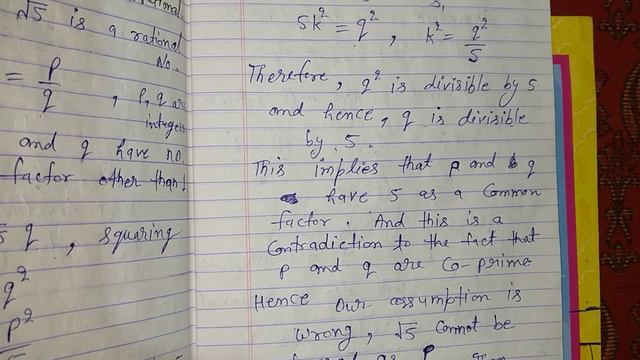 √5 is a rational
No.
= p/q , p, q are
integers
and q have no
factor other than 1
q , squaring
q²
p²
5k² = q² , k² = q²/5
Therefore, q² is divisible by 5
and hence, q is divisible
by 5.
This implies that p and q
have 5 as a common
factor. And this is a
Contradiction to the fact that
p and q are Co-prime
Hence our assumption is
wrong, √5 Cannot be